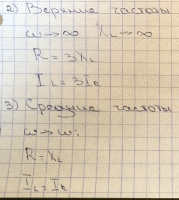 2) Верхние частоты
ω→∞ X_L→∞
R = 3X_L
I_L = 3I_R
3) Средние частоты
ω→ω_i
R = X_L
I_L = I_R